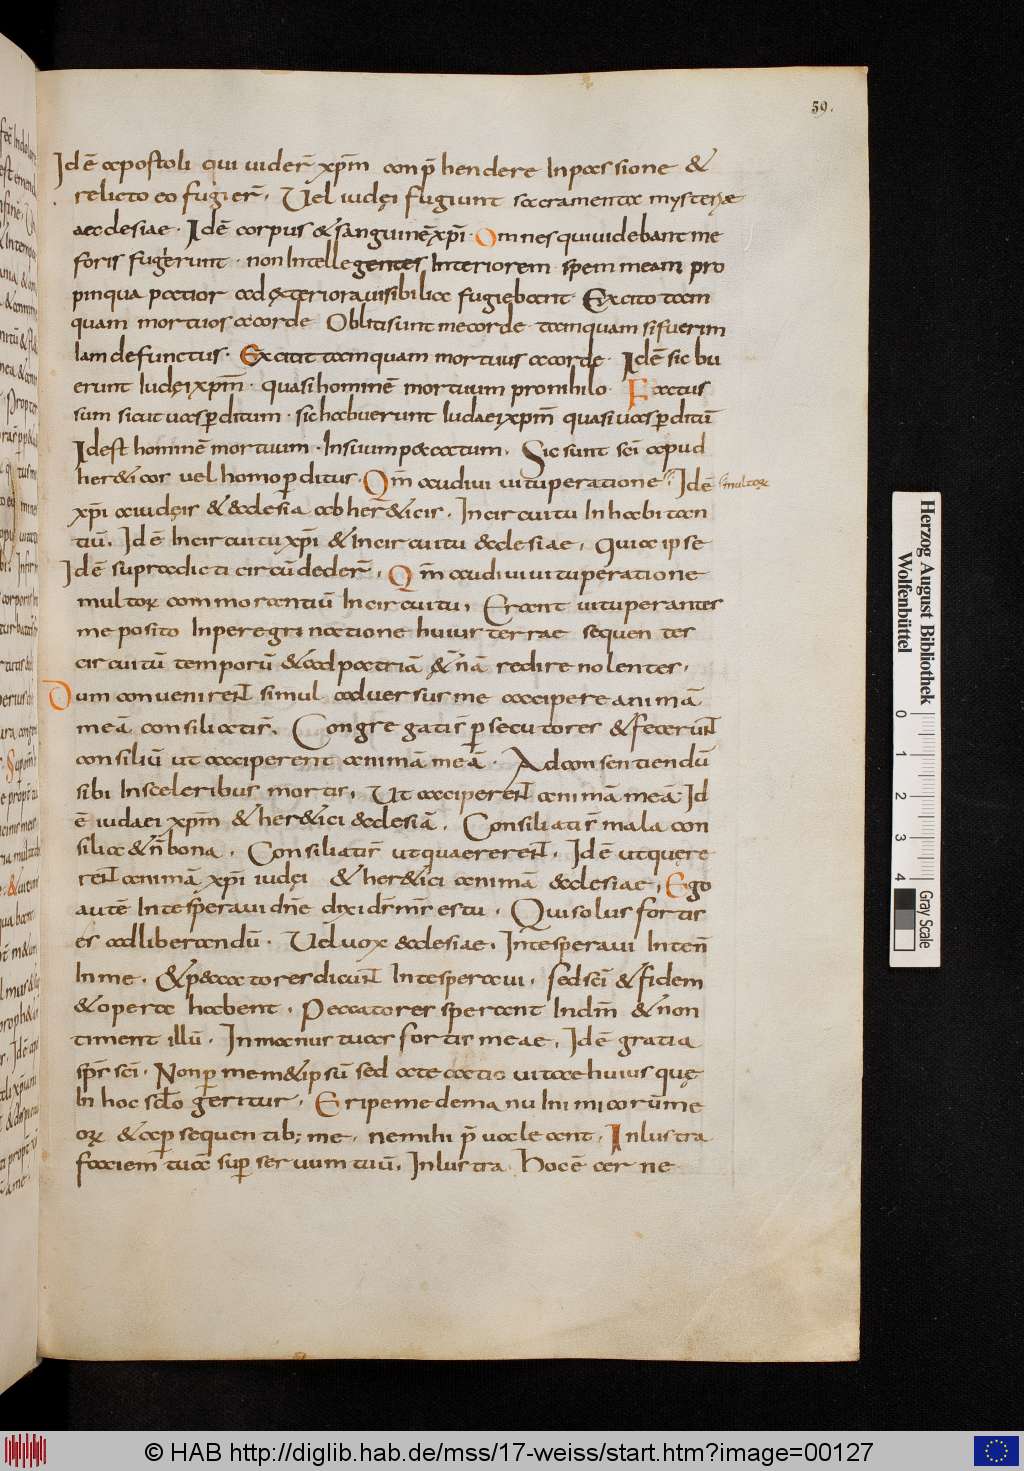 59.
Idē apostoli qui uider̄ xp̄m conp̄hendere Inpassione &
relicto eo fugier̄. Uel iudęi fugiunt sacramenta mysterię
aecclesiae. Idē corpus & sanguinē xp̄i. Omnes qui uidebant me
foris fugerunt. non Intellegentes Interiorem spem meam pro
pinqua patior ad exteriora uisibilia fugiebant. Excito tam
quam mortuos acorde Obliti sunt me corde tamquam si fuerim
Iam defunctus. Excitit tamquam mortuus acorde. Idē sic bu
erunt Iudęi xp̄m. quasi hominē mortuum pronihilo. Factus
sum sicut uas p̱ditum. sic habuerunt Iudaei xp̄m quasi uas p̱ditū
Id est hominē mortuum. Insuum peccatum. Sic sunt sc̄i apud
her&icos uel homo p̱ditus. Qm̄ audiui uituperationē Idē
multoꝝ
xp̄i aiudęis & ecclesia ab her&icis. Incircuitu Inhabitan
tiū. Idē Incircuitu xp̄i & Incircuitu ecclesiae. Quia ipse
Idē supradicti circūdeder̄. Qm̄ audiui uituperatione
multoꝝ commorantiū Incircuitu. Erant uituperantes
me posito Inperegrinatione huius terrae sequentes
circuitū temporū & ad patriā &ernā redire nolentes.
Dum conuenirent simul aduersus me accipere animā
meā consiliatis̄. Congregatis̄ p̱secutores & fecerunt
consiliū ut acciperent animā meā. Ad consentiendū
sibi Insceleribus mortis. Ut acciperent animā meā Id
ē iudaei xp̄m & her&ici ecclesiā. Consiliatis̄ mala con
silia & n̄ bona. Consiliatis̄ ut quaererent. Idē ut quęre
rent animā xp̄i iudęi & her&ici animā ecclesiae, Ego
autē Intesperaui dn̄e dixi ds̄ ms̄ es tu. Qui solus fortis
es ad liberandū. Uel uox ecclesiae. Intesperaui Inten̄
Inme. & peccatores dicunt Intesperaui. sed sc̄i & fidem
& opera habent. Peccatores sperant Indn̄m & non
timent illū. Inmanus tuas sortis meae. Idē gratia
sp̄s sc̄i. Non p̱ memetipsū sed acte actio uitae huius quę
In hoc sc̄lo geritur. Eripe me de manu Inimicorū me
oꝝ & ap̱sequentib; me. ne mihi p̄uaeleant. Inlustra
faciem tuā sup̱ seruum tuū. Inlustra Hoc ē cerne
Herzog August Bibliothek
Wolfenbüttel
0 1 2 3 4
Gray Scale
© HAB http://diglib.hab.de/mss/17-weiss/start.htm?image=00127